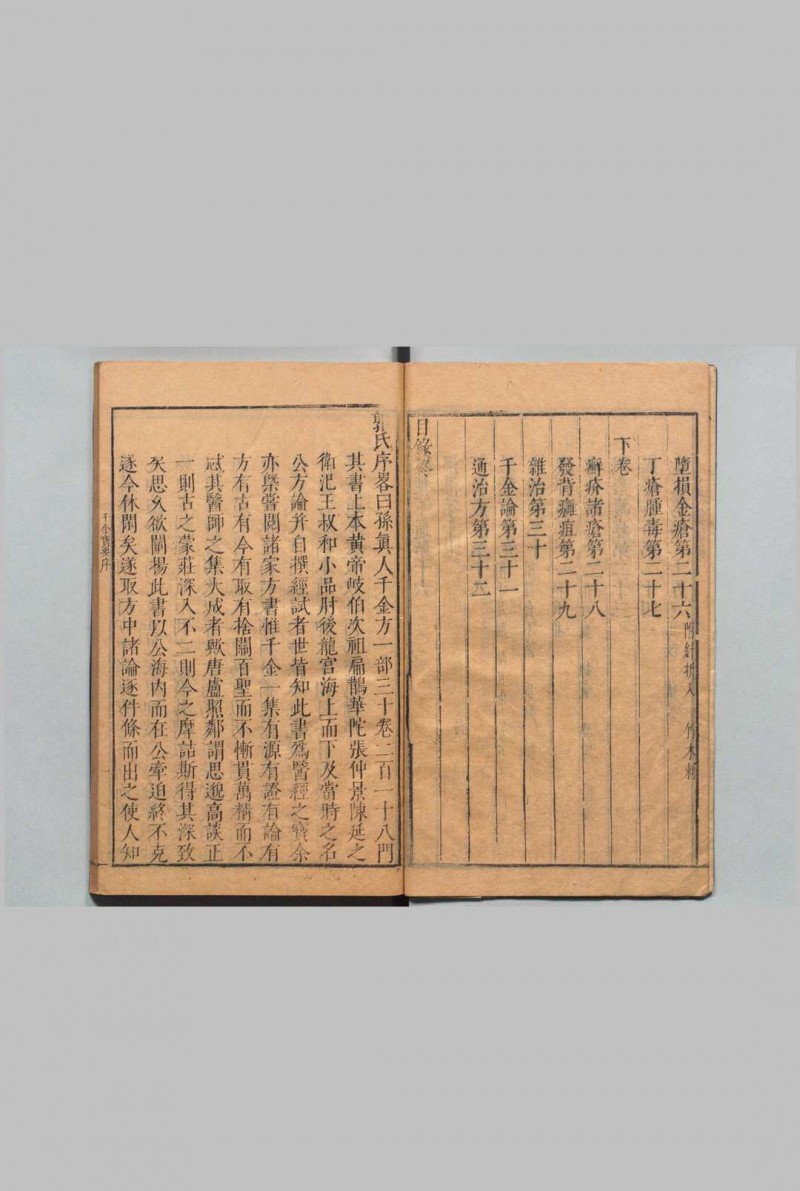 墮損金瘡第二十六 附針折入 竹木刺
丁瘡腫毒第二十七
下卷
癬疥諸瘡第二十八
發背癰疽第二十九
雜治第三十
千金論第三十一
通治方第三十二
目錄終
郭氏序畧曰孫眞人千金方一部三十卷二百一十八門
其書上本黄帝岐伯次祖扁鵲華陀張仲景陳延之
衛汜王叔和小品肘後龍宫海上而下及當時之名
公方論并自撰經試者世皆知此書爲醫經之寶余
亦槩嘗閱諸家方書惟千金一集有源有證有論有
方有古有今有取有捨關百聖而不慚貫萬精而不
忒其醫師之集大成者歟唐盧照鄰謂思邈高談正
一則古之蒙莊深入不二則今之摩詰斯得其深致
矣思久欲闡揚此書以公海内而在公牽迫終不克
遂今休閑矣遂取方中諸論逐件條而出之使人知
千金寶要序